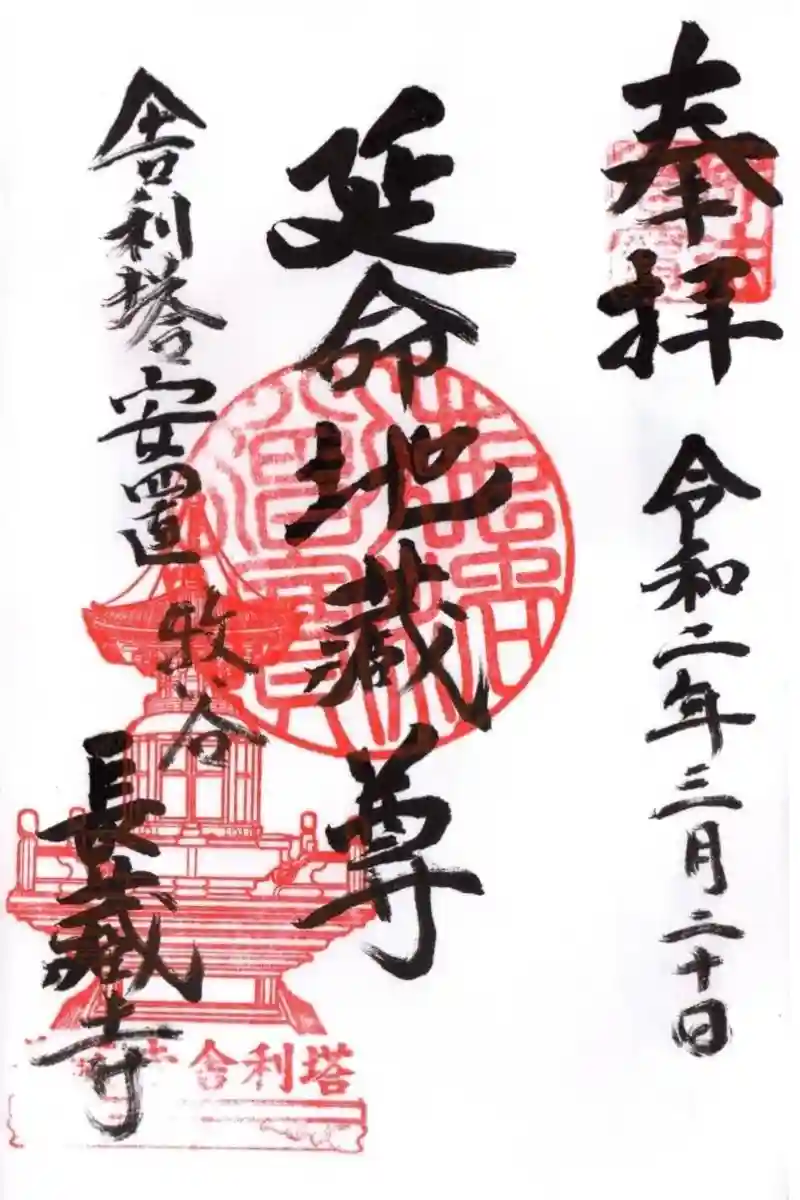 奉拝
令和二年三月二十日
延命地蔵尊
舎利塔安置
牧谷
長蔵寺
舎利塔